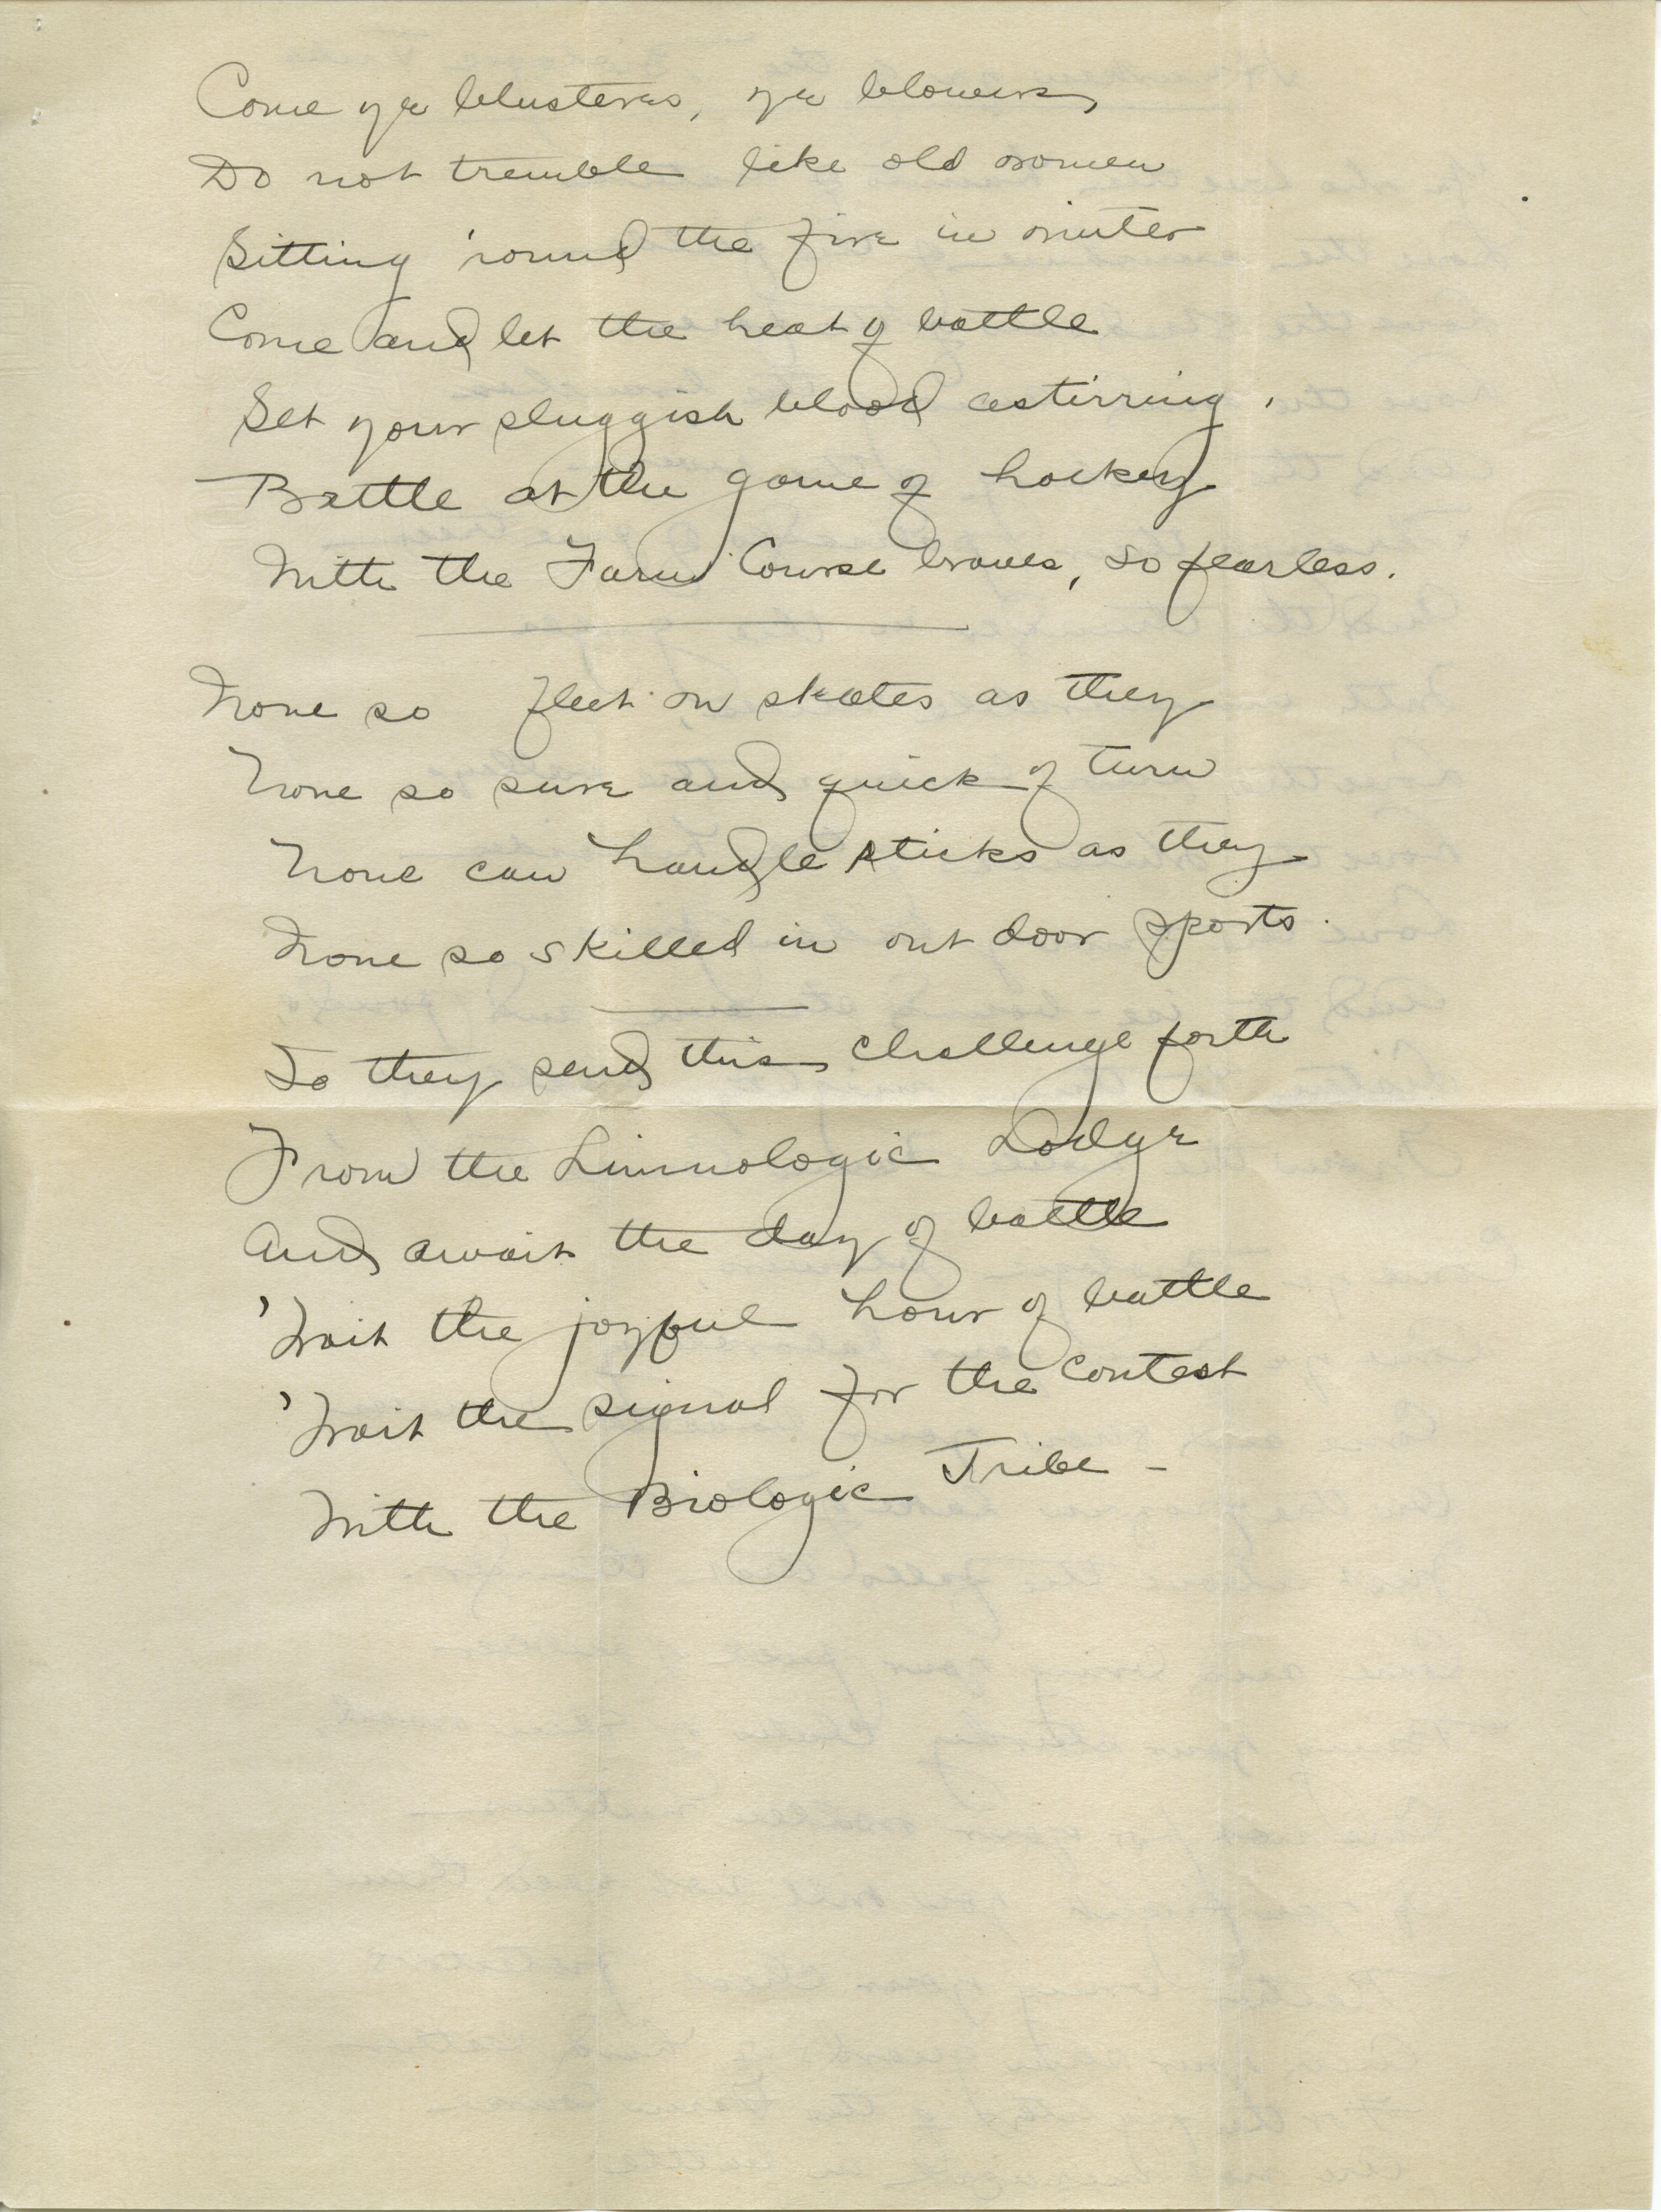 Come ye blusterers, ye blowers,
Do not tremble like old women
Sitting 'round the fire in winter
Come and let the heat of battle
Set your sluggish blood astirring,
Battle at the game of hockey
With the Farm Course braves, so fearless.
None so fleet on skates as they
None so sure and quick of turn
None can handle sticks as they
None so skilled in out door sports.
So they send this challenge forth
From the Limnologic Lodge
And await the day of battle
'Wait the joyful hour of battle
'Wait the signal for the contest
With the Biologic Tribe -